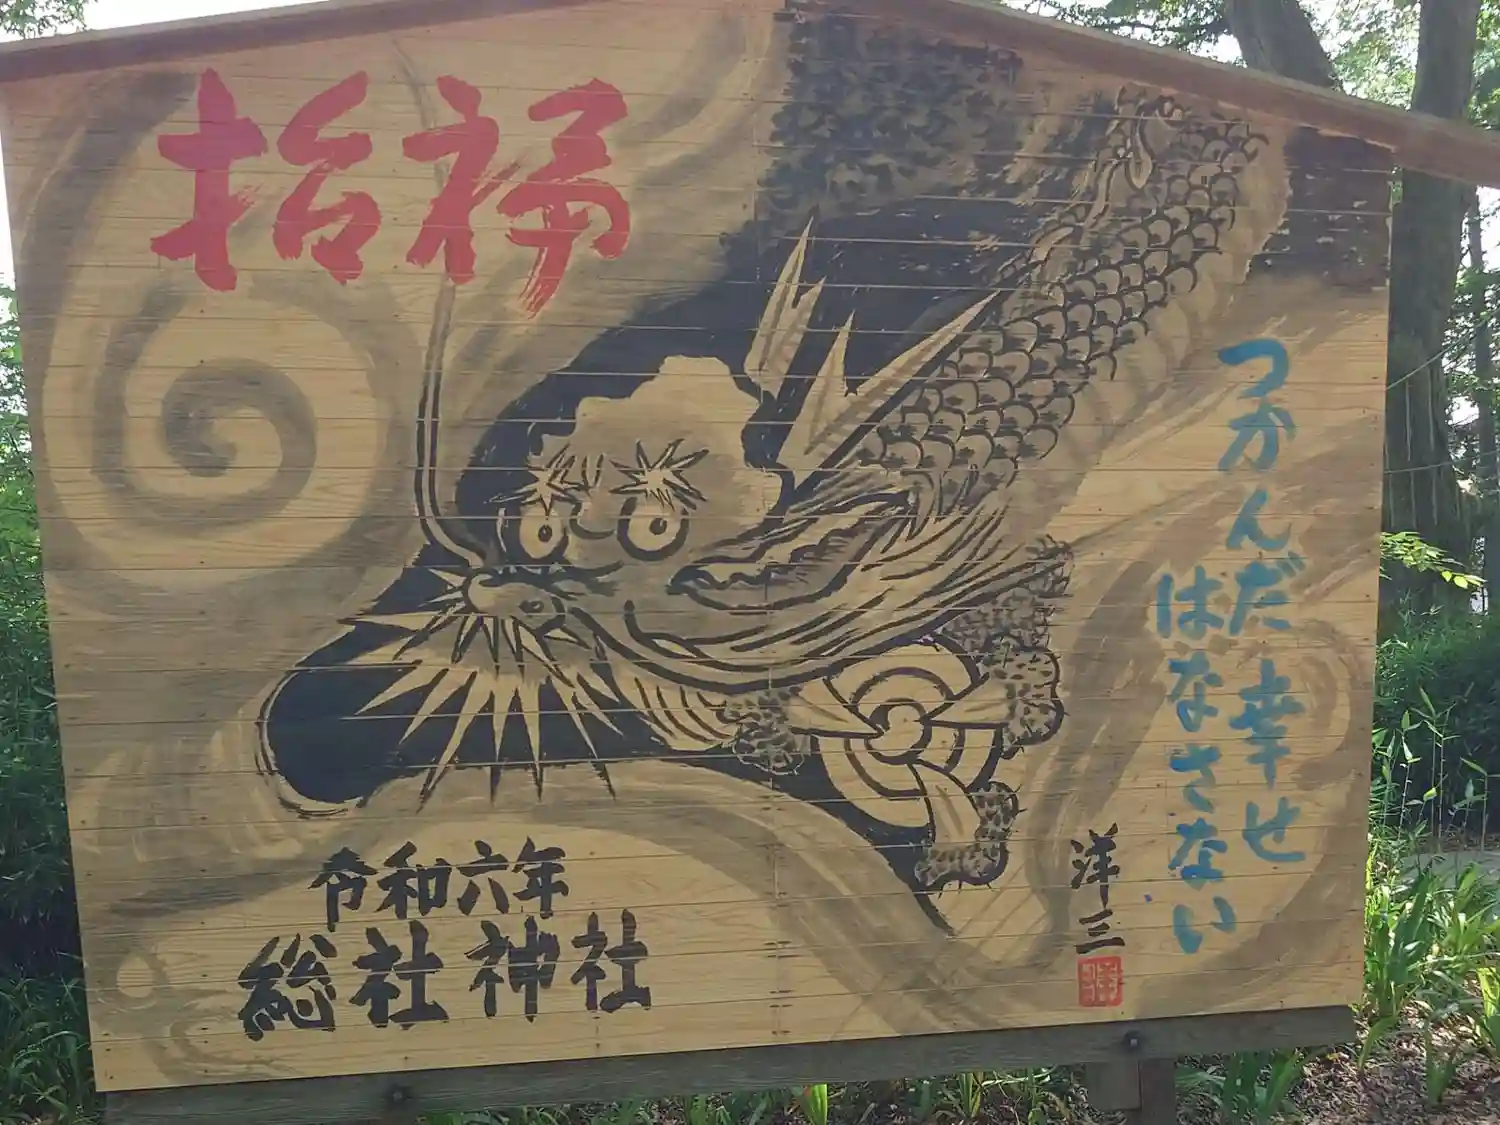 招福
つかんだ幸せ
はなさない
洋三
令和六年
総社神社